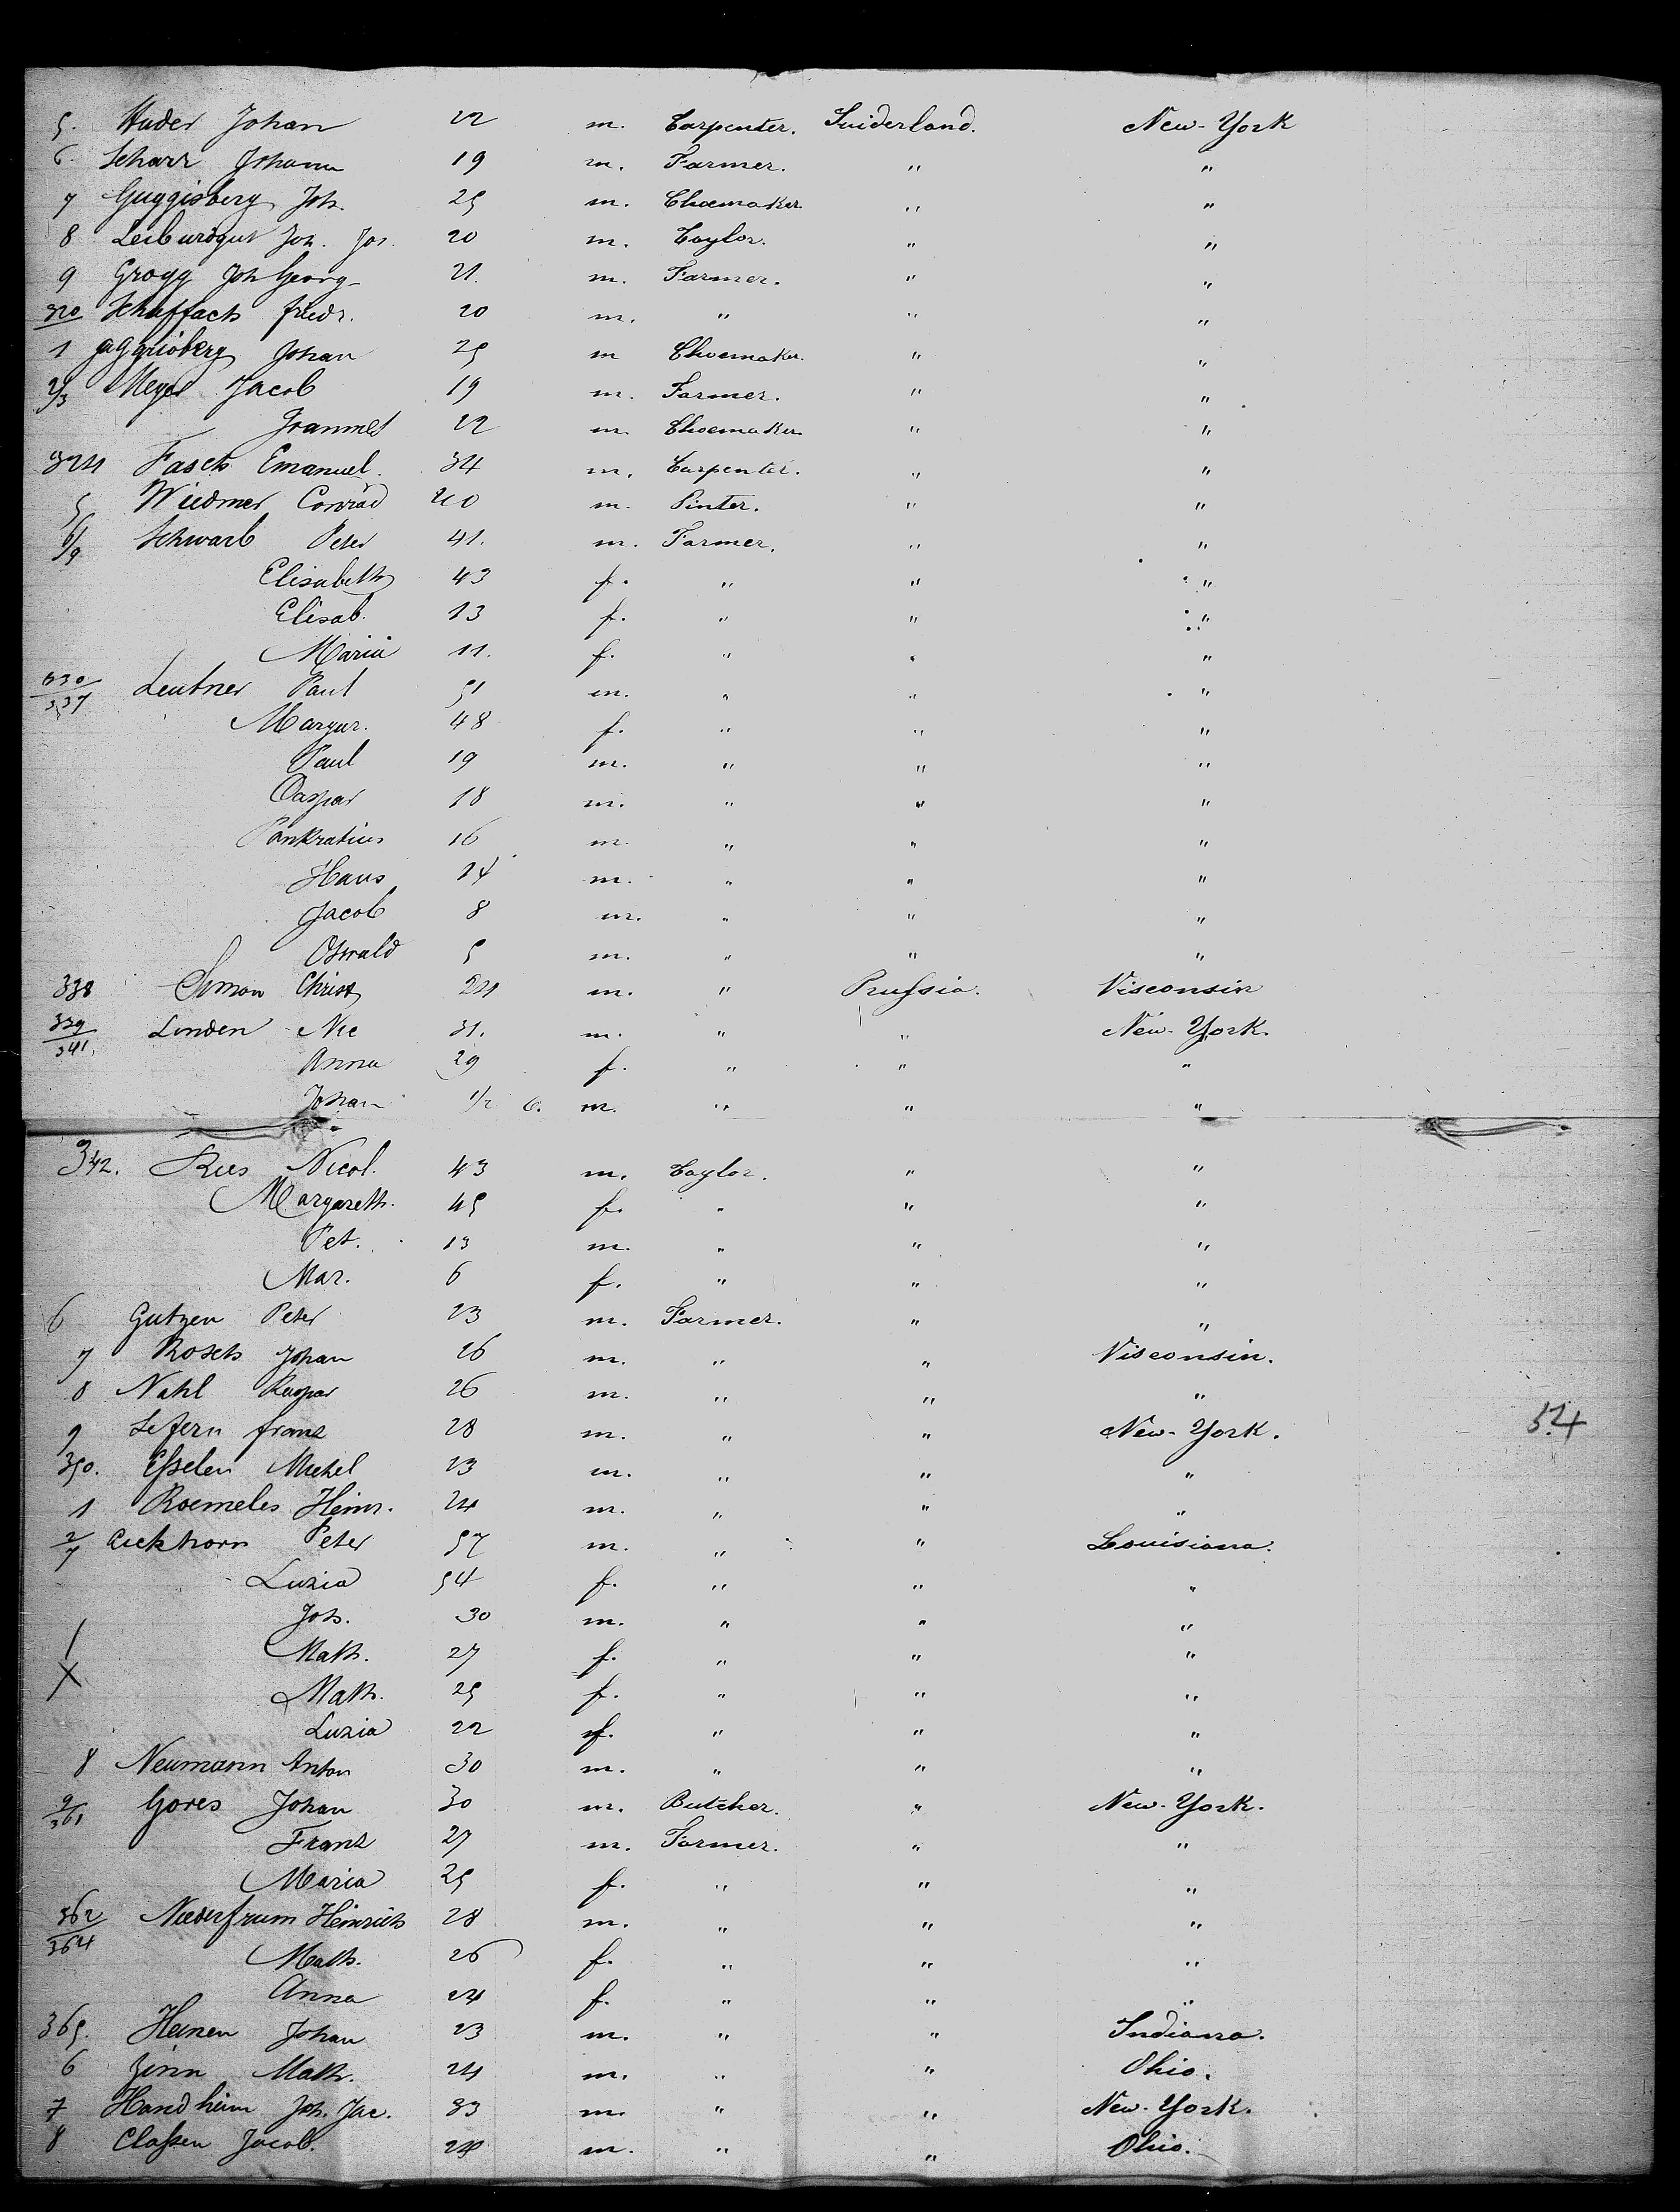 5. Huder Johan 22 m. Carpenter. Suiderland. New-York
6. Scharr Johann 19 m. Farmer. " "
7 Guggisberg Joh. 25 m. Choemaker " "
8 Leibundgut Joh. Jos. 20 m. Taylor. " "
9 Grogg Joh Georg 21. m. Farmer. " "
320 Schaffach friedr. 20 m. " " "
1 Johan 25 m Choemaker. " "
2/3 Meyer Jacob 19 m. Farmer. " "
22 m Choemaker " "
324 Fasch Emanuel. 34 m. Carpenter. " "
5 Wiedmer Conrad 20 m. Pinter. " "
6/9 Schwarb Peter 41. m. Farmer. " "
Elisabeth 43 f. " " "
Elisab. 13 f. " " "
Maria 11. f. " " "
330/337 Leutner Paul 51 m. " " "
Margar. 48 f. " " "
Paul 19 m. " " "
Caspar 18 m. " " "
Pankratius 16 m. " " "
Hans 14 m. " " "
Jacob 8 m. " " "
Oswald 5 m. " " "
338 Simon Christ 24 m. " Prussia. Visconsin
339/341. Linden Nic 31. m. " " New-York.
Anna 29 f. " " "
Johan 1/2 6. m. " " "
342. Ries Nicol. 43 m. Taylor. " "
Margareth. 45 f. " " "
Pet. 13 m. " " "
Mar. 6 f. " " "
6 Gutzen Peter 23 m. Farmer. " "
7 Rosch Johan 26 m. " " Visconsin.
8 Nahl Kaspar 26 m. " " "
9 Sefern franz 28 m. " " New-York. 54
350. Esselen Michel 23 m. " " "
1 Roemeles Heinr. 24 m. " " "
2/7 Eickhorn Peter 57 m. " " Louisiana.
Luzia 54 f. " " "
Joh. 30 m. " " "
Math. 27 f. " " "
X Math. 25 f. " " "
Luzia 22 f. " " "
8 Neumann Anton 30 m. " " "
9/361 Gores Johan 30 m. Butcher. " New-York.
Franz 27 m. Farmer. " "
Maria 25 f. " " "
362/364 Niederfrum Heinrich 28 m. " " "
Math. 26 f. " " "
Anna 24 f. " " "
365. Heinen Johan 23 m. " " Indiana.
6 Zinn Math. 24 m. " " Ohio.
7 Handheim Joh. Jac. 33 m. " " New-York.
8 Classen Jacob. 24 m. " " Ohio.